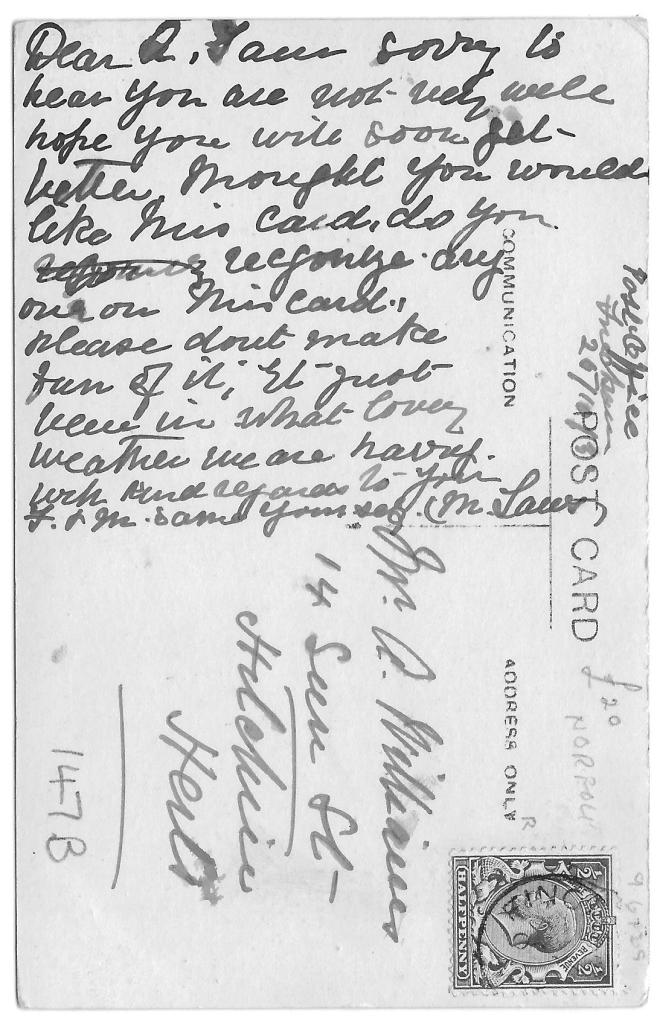 Dear A, I am sorry to
hear you are not very well
hope you will soon get
better, thought you would
like this card, do you
recgonize any
one on this card,
please dont make
fun of it, It just
been in what lovey
weather we are having.
with kind regards to your
F. & M. same yourself. (M. Laws
COMMUNICATION
Post Office
POST CARD
ADDRESS ONLY
A. Williams
14 Sun St
Hitchin
Herts
147B
£20
NORFOLK
R
KING
REVENUE
1/2 1/2
HALFPENNY